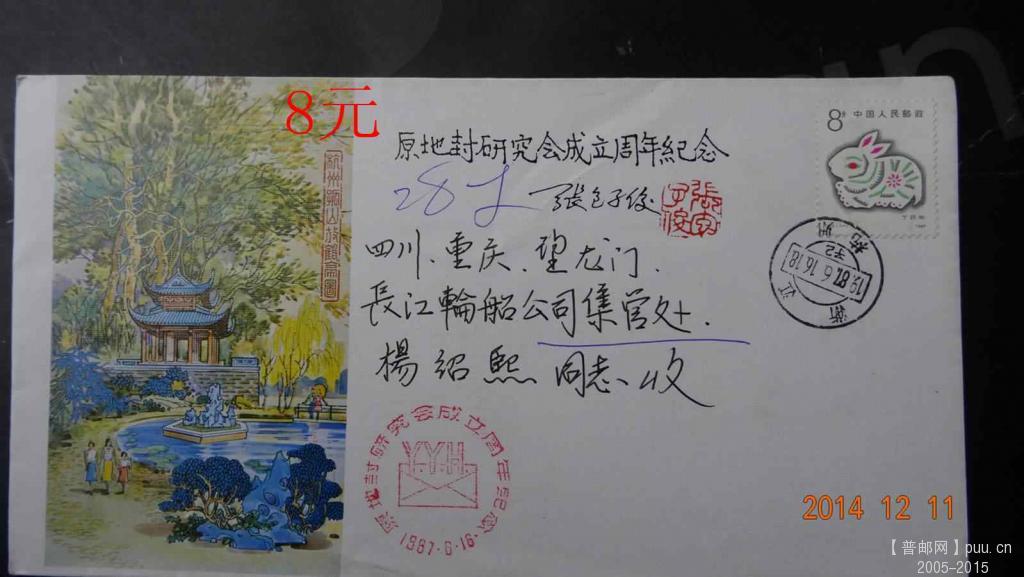 8元
原地封研究会成立周年纪念
28
张包子俊
张包
子俊
四川.重庆.望龙门.
長江輪船公司集管处.
楊绍熙 同志收
杭州孤山放鶴亭圖
8分 中国人民邮政
丁卯年
浙江
1987.6.16.18
杭州
原地封研究会成立周年纪念
Y.Y.H.
1987·6·16·
2014 12 11
【普邮网】puu.cn
2005-2015